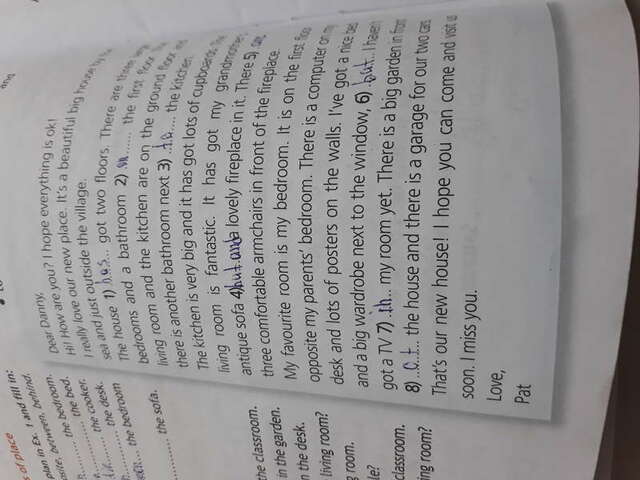 Dear Danny,
Hi! How are you? I hope everything is ok!
I really love our new place. It's a beautiful big house by the
sea and just outside the village.
The house 1) has got two floors. There are three
bedrooms and a bathroom 2) on the first floor. The
living room and the kitchen are on the ground floor and
there is another bathroom next 3) to the kitchen.
The kitchen is very big and it has got lots of cupboards. The
living room is fantastic. It has got my grandmother's
antique sofa 4) but and a lovely fireplace in it. There 5) are
three comfortable armchairs in front of the fireplace.
My favourite room is my bedroom. It is on the first floor
opposite my parents' bedroom. There is a computer on my
desk and lots of posters on the walls. I've got a nice bed
and a big wardrobe next to the window, 6) but I haven't
got a TV 7) in my room yet. There is a big garden in front
8) of the house and there is a garage for our two cars.
That's our new house! I hope you can come and visit us
soon. I miss you.
Love,
Pat
of place
plan in Ex. 1 and fill in:
between, behind.
the bedroom.
the bed.
the cooker.
the desk.
the bedroom
the sofa.
the classroom.
in the garden.
on the desk.
living room?
room.
classroom.